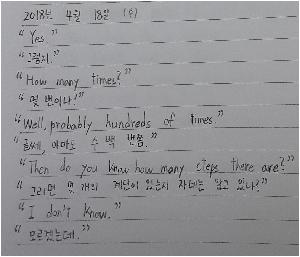 2018년 4월 18일 (수)
"Yes."
"그렇지."
"How many times?"
"몇 번이나?"
"Well, probably hundreds of times."
"글쎄, 아마도 수 백 번쯤."
"Then do you know how many steps there are?"
"그러면 몇 개의 계단이 있는지 자네는 알고 있나?"
"I don't know."
"모르겠는데."